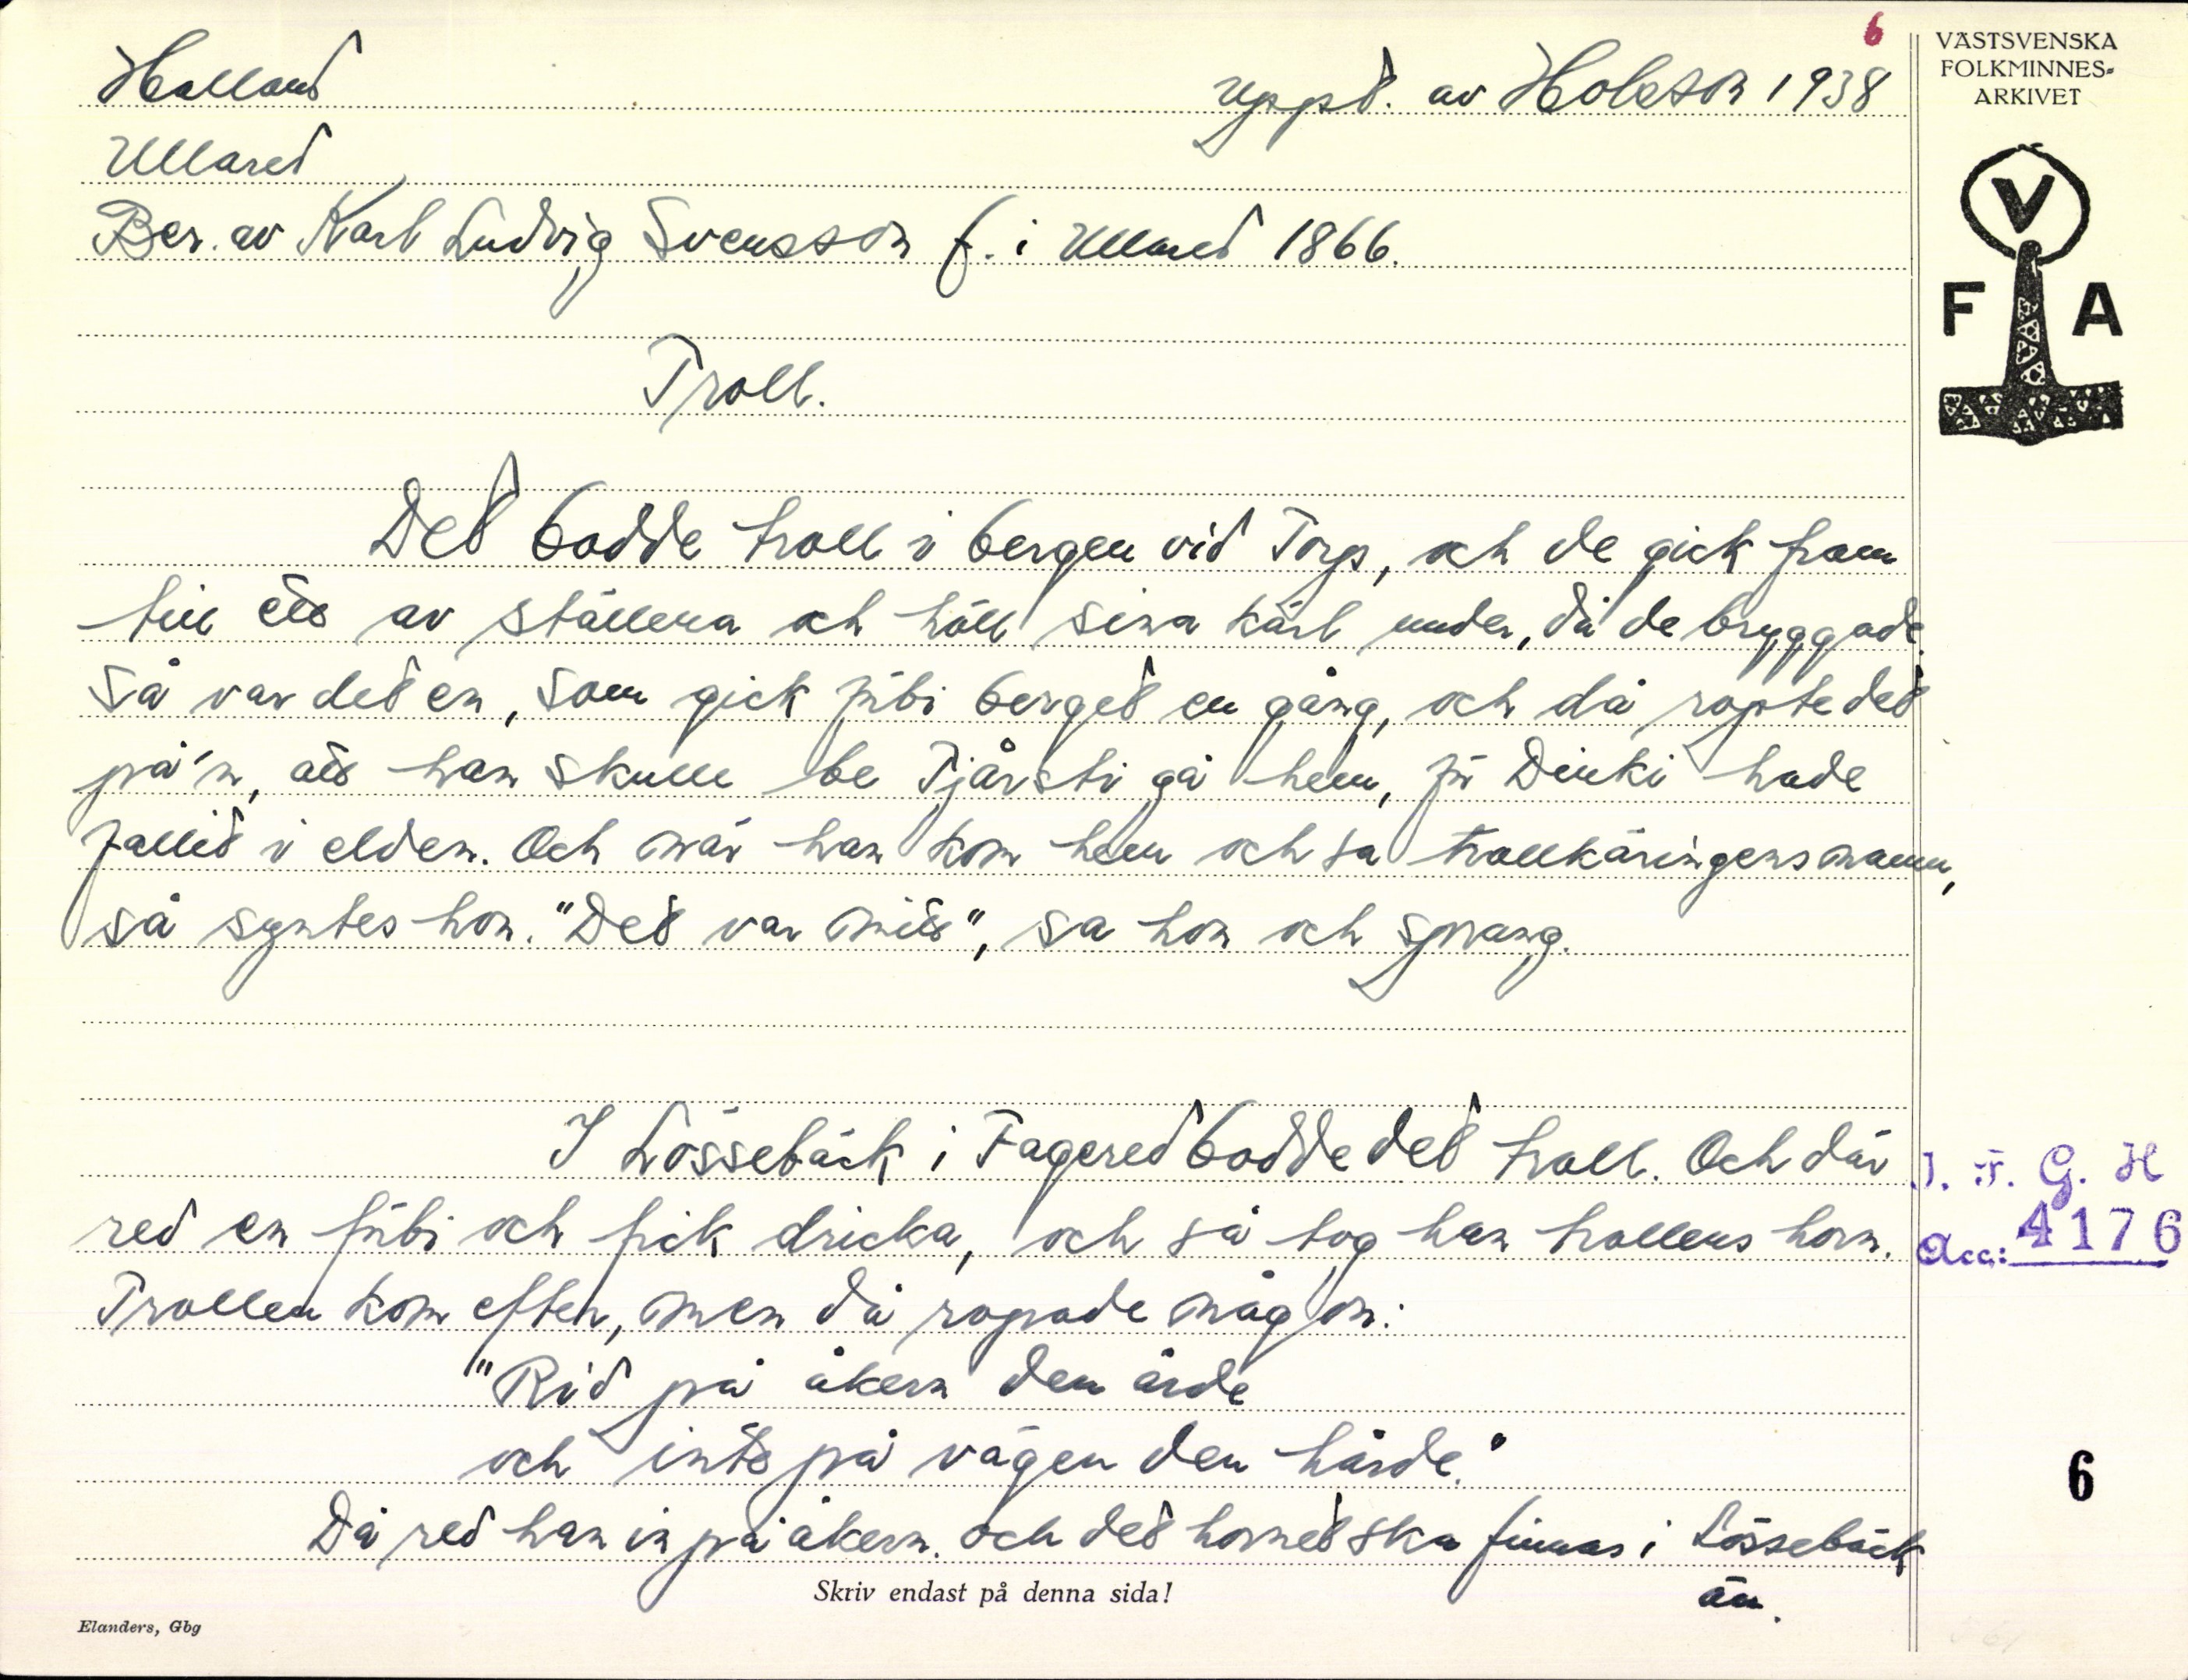 6
Halland
Uppt. av Holsson 1938
Ullared
Ber. av Karl Ludvig Svensson f. i Ullared 1866.
Troll.
Det bodde troll i bergen vid Torp, och de gick fram
till ett av ställena och höll sina kärl under, då de bryggade.
Så var det en, som gick förbi berget en gång, och då ropte det
på'n, att han skulle be Tjårsti gå hem, för Dinki hade
fallit i elden. Och när han kom hem och sa trollkäringens namn,
så syntes hon. "Det var mitt", sa hon och sprang.
I Lössebäck i Fagered bodde det troll. Och där
red en förbi och fick dricka, och så tog han trollens horn.
Trollen kom efter, men då ropade någon:
"Rid på åkern den årde
och inte på vägen den hårde."
Då red han in på åkern. Och det hornet ska finnas i Lössebäck
än.
Skriv endast på denna sida!
Elanders, Gbg
VÄSTSVENSKA
FOLKMINNES-
ARKIVET
V
F A
I. F. G. H
Acc: 4176
6